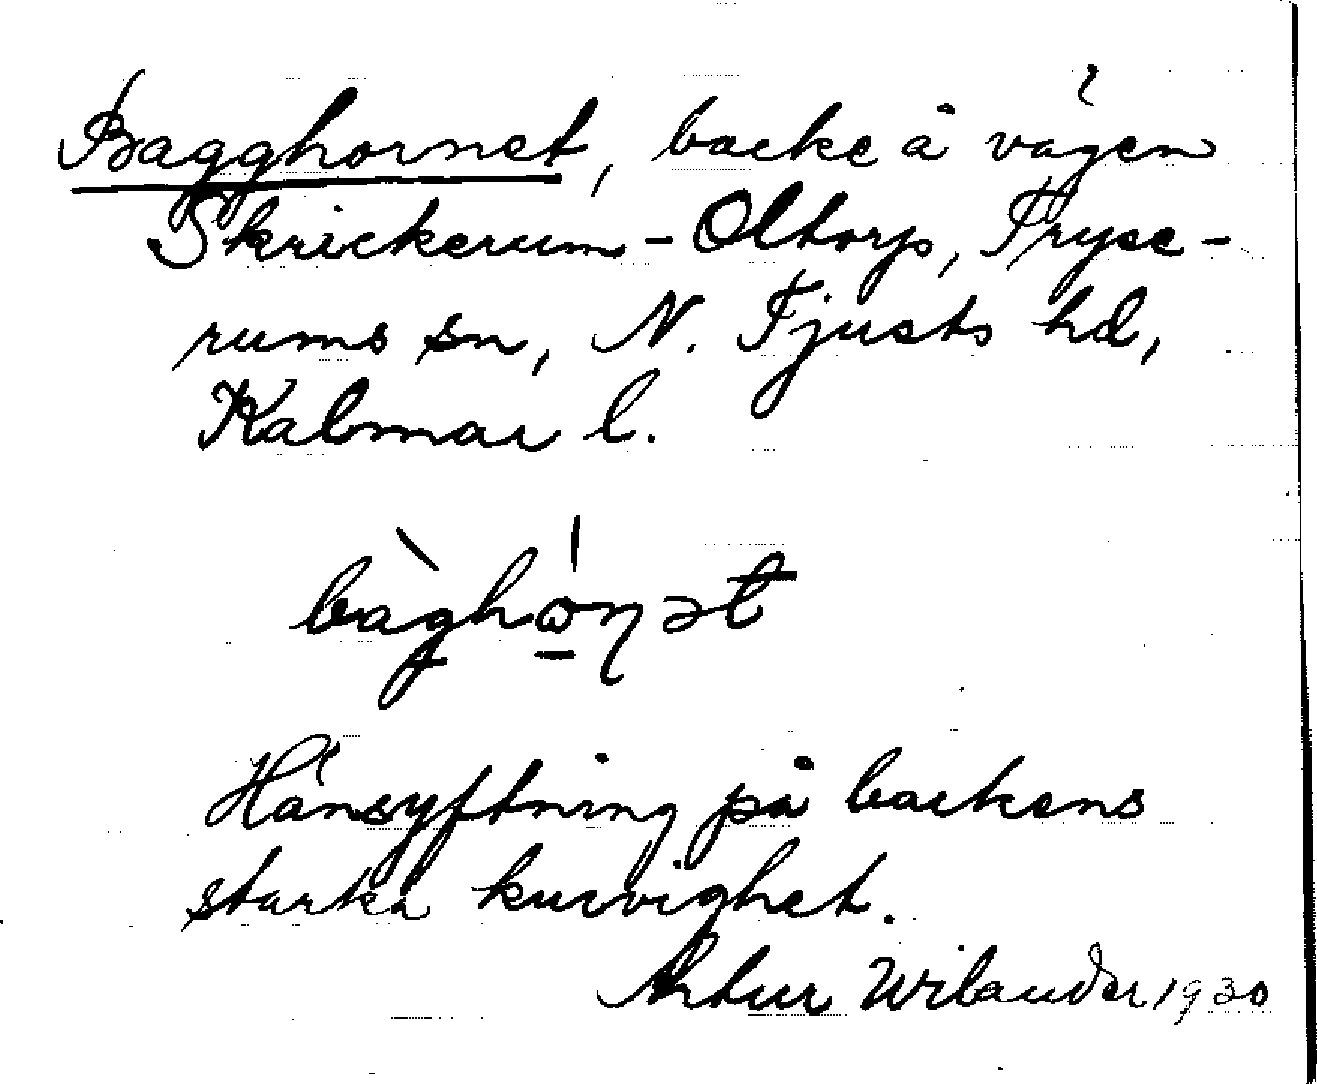 Bagghornet, backe å vägen
Skrickerum - Oltorp, Tryse-
rums sn, N. Tjusts hd,
Kalmar l.
bàghɷ̀ƞət
Hänsyftning på backens
starka kurvighet.
Artur Wilander 1930